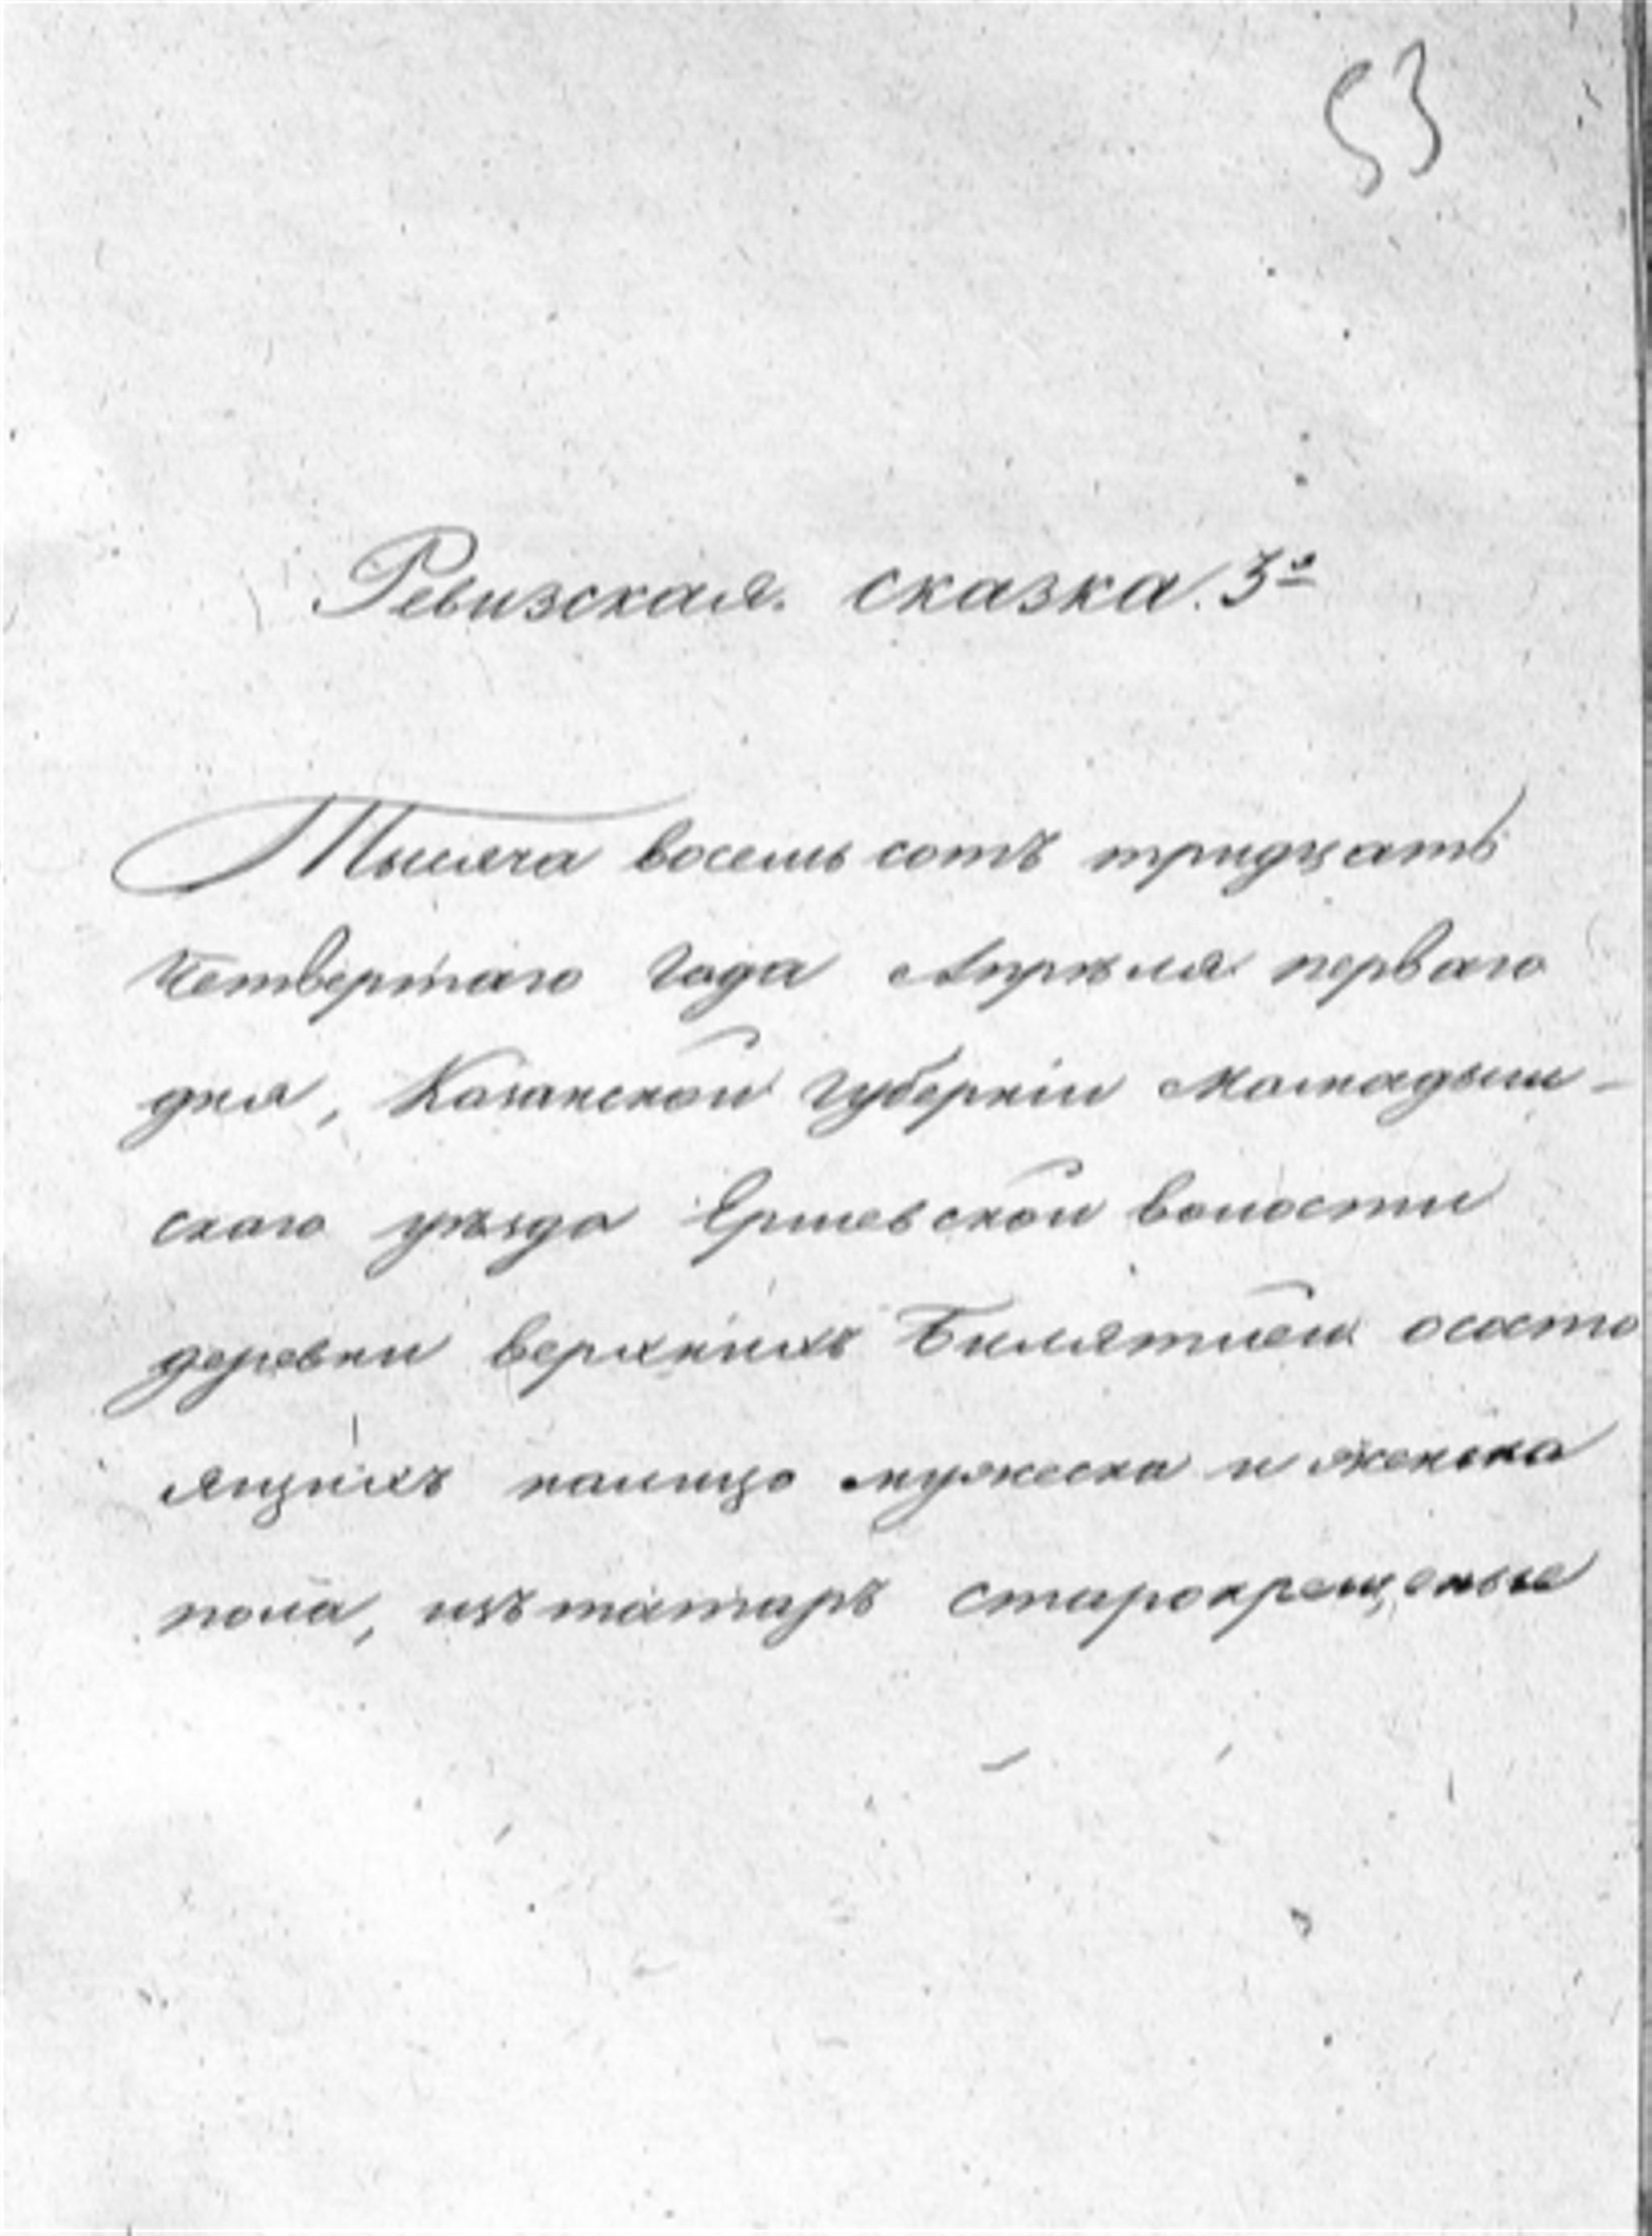 53
Ревизская сказка. 3ª
Тысяча восемь сотъ тридцать
четвертаго года Апрѣля перваго
дня, Казанской губерніи Мамадыш-
скаго уѣзда Ершевской волости
деревни верхнихъ ососто
ящихъ налицо мужеска и женска
пола, изъ татаръ старокрещеные